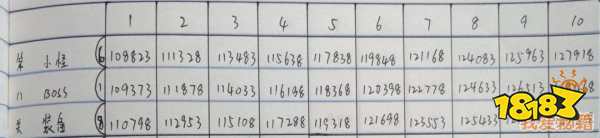 1 2 3 4 5 6 7 8 9 10
第 小怪 6 108823 111328 113483 115638 117838 119848 121168 124083 125963 127918
11 BOSS 1 109373 111878 114033 116188 118368 120398 122778 124633 126513
关 装备 8 110798 112953 115108 117288 119318 121698 123553
18183